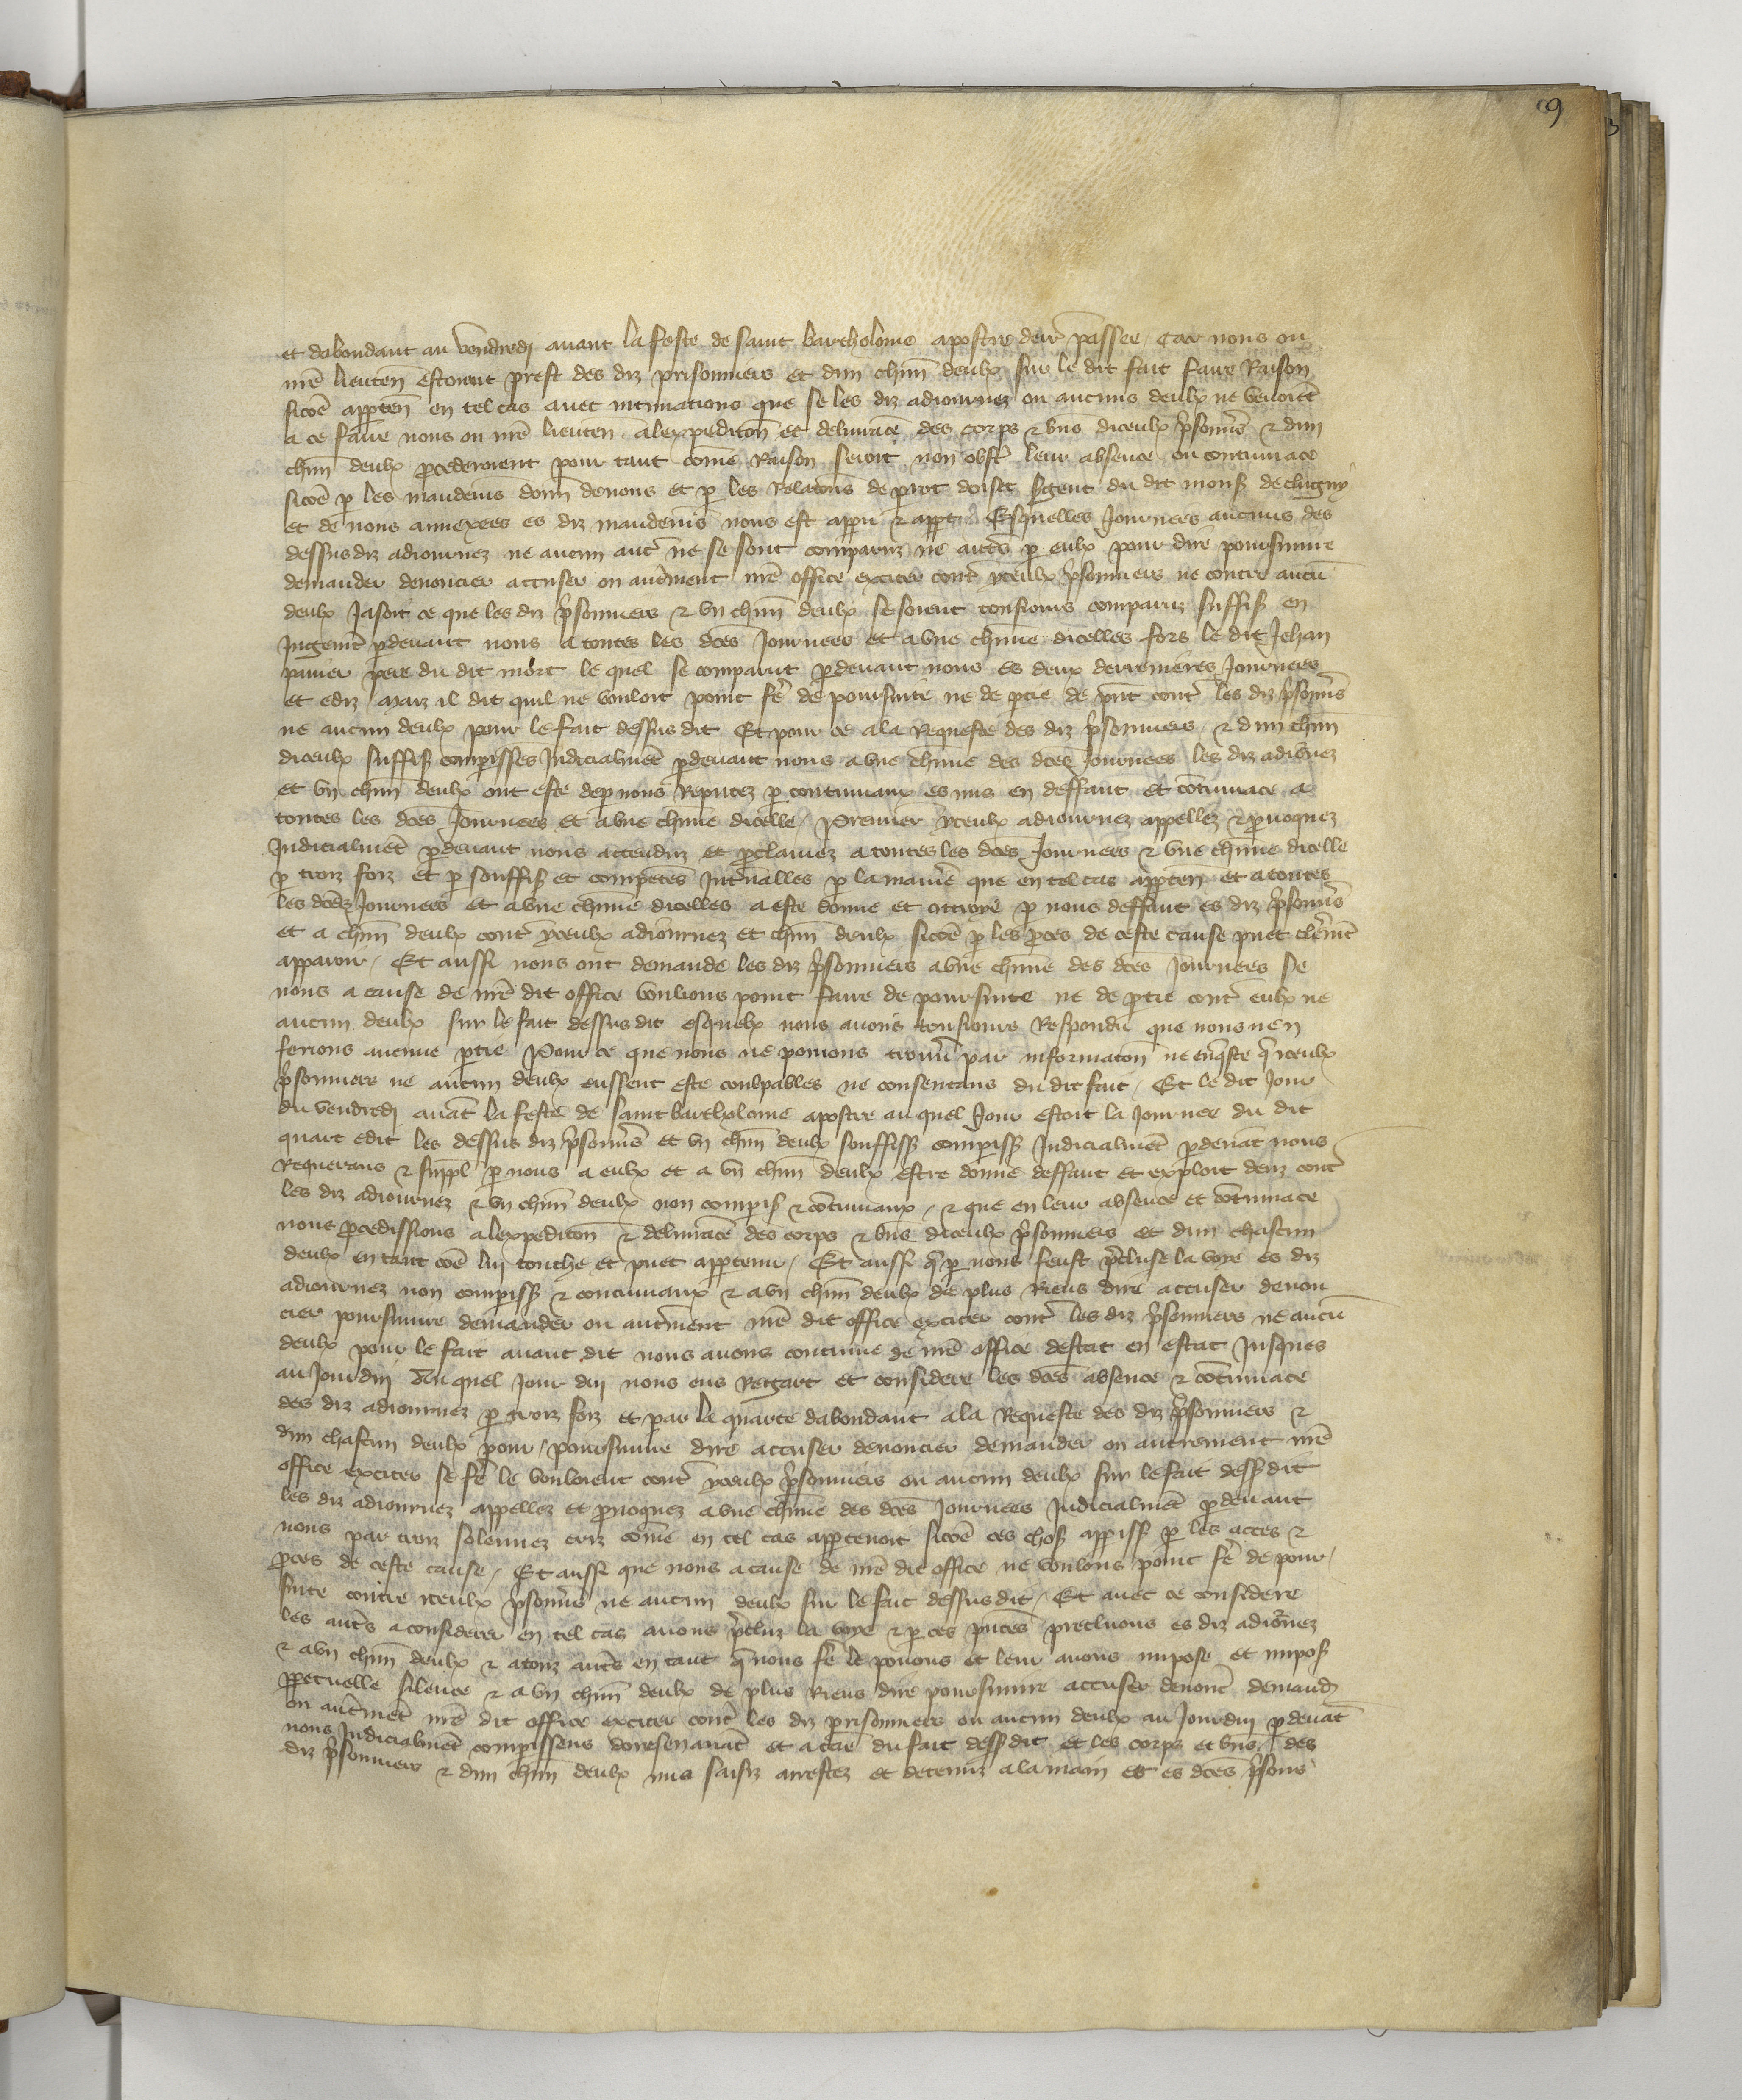 9
et dabondant au vendredj auant la feste de saint bartholome apostre derr passee / Car nous ou
nrē lieuten estoient prest des diz prisonniers et dun chūn deulx sur le dit fait faire Raison
sicōē apptēn en tel cas auec intimations que se les diz adiournez ou aucuns deulx ne venoiēt
a ce faire nous ou nrē lieuten a lexpeditōn et deliurāce des corps & biēs diceulx pͬsonnͬs & dun
chūn deulx p̱cederoient pour tant cōme Raison seroit non obstͭ leur absence ou contumace
sicōē p̱ les mandemͭs donn de nous et p̱ les Relatōns de sͬgent du dit monsͬ de clugny
et de nous annexees es diz mandemͭs nous est appu & appt Esquelles Journees aucuns des
dessusdiz adiournez ne aucun autͬ ne se sont comparuz ne autͬs p̱ eulx pour dire poursuiure
demander denoncier accuser ou autͬment nrē office exciter contͬ yceulx pͬsonniers ne contre aucū
deulx Jasoit ce que les diz pͬsonniers & vn chūn deulx se soient tousiours comparuz suffisͭ en
Jugemͭ p̱deuant nous a toutes les dcēs Journees et a vne chūne dicelles fors le dit Jehan
panier pere du dit mort le quel se comparut p̱deuant nous es deux derrenieres Journees
et ediz Maiz il dit quil ne vouloit point fͤrͤ de poursuite ne de p̱tie de pn̄t contͬ les diz pͬsonnͬs
ne aucun deulx pour le fait dessus dit Et pour ce a la Requeste des diz pͬsonniers & dun chūn
diceulx suffisͭ comp̱isses Judicialmēt p̱deuant nous a vne chūne des dcēs Journees les diz adiōnez
et vn chūn deulx ont este de p̱ nous Reputez p̱ contumaux es mis en deffaut et cōtumace a
toutes les dcēs Journees et a vne chūne dicelle / Premier yceulx adiournez appellez & p̱uoquez
Judicialmēt p̱deuant nous attenduz et p̱clamez a toutes les dcēs Journees & vne chūne dicelle
p̱ troiz foiz et p̱ souffisͭ et competēs Intͬualles p̱ la maniē que en tel cas apptēn et a toutes
les dcēs Journees et a vne chūne dicelles a este donne et ottroye p̱ nous deffaut es diz pͬsonnͬs
et a chūn deulx contͬ yceulx adiournez et chūn deulx sicōē p̱ les p̱ces de ceste cause puet clerͤmēt
apparoir / Et aussi nous ont demande les diz pͬsonniers a vne chūne des dcēs Journees Se
nous a cause de nrē dit office voulions point faire de poursuite ne de p̱tie contͬ eulx ne
aucun deulx sur le fait dessus dit esquelx nous auons tousiours Respondu que nous nen
ferions aucune p̱tie Pour ce que nous ne pouions trouuͬ par informatōn ne enqͣste qͥ iceulx
pͬsonniers ne aucun deulx eussent este coulpables ne consentans du dit fait / Et le dit Jour
du vendredj auāt la feste de saint bartholome apostre au quel Jour estoit la Journee du dit
quart edit les dessus diz pͬsonnͬs et vn chūn deulx souffisͭ comp̱issͭ Judicialmēt p̱deuāt nous
Requerans & suppl p̱ nous a eulx et a vn chūn deulx estre donne deffaut et exploit contͬ
les diz adiournez & vn chūn deulx non comp̱isͭ & cōtumaux / & que en leur absence et cōtumace
nous p̱cedissions a lexpeditōn & deliurāce des corps & biēs diceulx pͬsonniers et dun chascun
deulx en tant cōē luj touche et puet app̱tenir / Et aussi qͥ p̱ nous feust pͬcluse la voye es diz
adiournez non comp̱issͭ & contumaux & a vn chūn deulx de plus Riens dire accuser denon
cier poursuiure demander ou autͬment nrē dit office exciter contͬ les diz pͬsonniers ne aucū
deulx pour le fait auant dit nous auons continue de nrē office destat en estat Jusques
au Jourduj Au quel Jour duj nous eus Regart et considere les dcēs absence & cōtumace
des diz adiournez p̱ troiz foiz et par la quarte dabondant a la Requeste des diz pͬsonniers &
dun chascun deulx pour / poursuiure dire accuser denoncier demander ou autrement nrē
office exciter se fͤrͤ le vouloient contͬ yceulx pͬsonniers ou aucun deulx sur le fait dessͬdit
les diz adiournez appellez et p̱uoquez a vne chūne des dcēs Journees Judicialmēt p̱deuant
nous par troiz solennez criz cōme en tel cas app̱tenoit sicōē ces chosͬ app̱issͭ p̱ les actes &
p̱ces de ceste cause / Et aussi que nous a cause de nrē dit office ne voulons point fͤrͤ de pour /
suite contre iceulx pͬsonnͬs ne aucun deulx sur le fait dessus dit / Et auec ce considere
les autͬs a considerer en tel cas auons pͬcluz la voye & p̱ ces pn̄tes precluons es diz adioͬnez
& a vn chūn deulx & a touz autͬs en tant qͥ nous fͤrͤ le pouons et leur auons impose et imposͭ
p̱petuelle silence & a vn chūn deulx de plus Riens dire poursuiure accuser denonͬ demandͬ
ou autͬmēt nrē dit office exciter contͬ les diz prisonniers ou aucun deulx au Jourduj p̱deuāt
nous Judicialmēt comp̱issens doresenauāt et a cāē du fait dessͬdit et les corps et biēs des
diz pͬsonniers & dun chūn deulx mis saisiz arrestez et detenuz a la main et es dcēs pͬsons